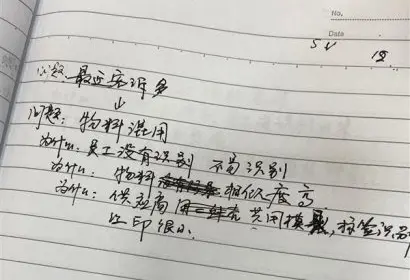 No.
Data
5W 12.
问题 最近客诉多
↓
问题: 物料混用
为什么: 员工没有识别 不易识别
为什么: 物料 相似度高
为什么: 供应商 共用模具, 标签识别
比印很小